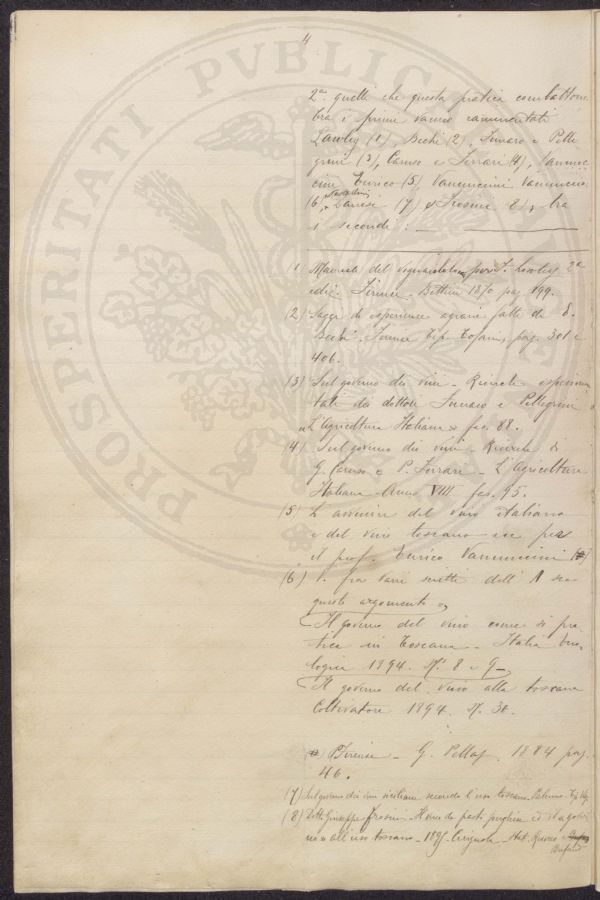 4
2ª quelli che questa pratica combattono.
Tra i primi vanno rammentati
Lawley (1), Bechi (2), Funaro e Pelle
grini (3), Caruso e Ferrari (4), Vannuc
cini Enrico (5), Vannuccini Vannuccio
(6), (7) e Frosini (8), tra
i secondi: —
(1) Manuale del vignaiolo per F. Lawley 2ª
ediz. Firenze - Bettini 1870 pag. 199.
(2) Saggi di esperienze agrarie fatte da E.
Bechi. Firenze Tip. pag. 301 e
406.
(3) Sul governo dei vini - Ricerche esperimen
tali dei dottori Funaro e Pellegrini
"L'Agricoltura Italiana" fas. 88.
(4) Sul governo dei vini - Ricerche di
G. Caruso e P. Ferrari - L'agricoltura
Italiana - Anno VIII fas. 95.
(5) L'avvenire del vino italiano
e del vino toscano ecc per
il prof. Enrico Vannuccini
(6) V. fra vari scritti dell'A
questo argomento
Il governo del vino come si pra
tica in Toscana - Italia Eno
logica 1894. N.i 8 e 9 -
Il governo del vino alla toscana
Coltivatore 1894. N. 30.
Firenze - G. Pellas. 1884 pag.
46.
(7) Sul governo dei vini siciliani secondo l'uso toscano. Palermo - Tip.
(8) Dott. Giuseppe Frosini - Il vino da pasto pugliese ed il gover
no all'uso toscano - 1895. Cerignola - Stab.